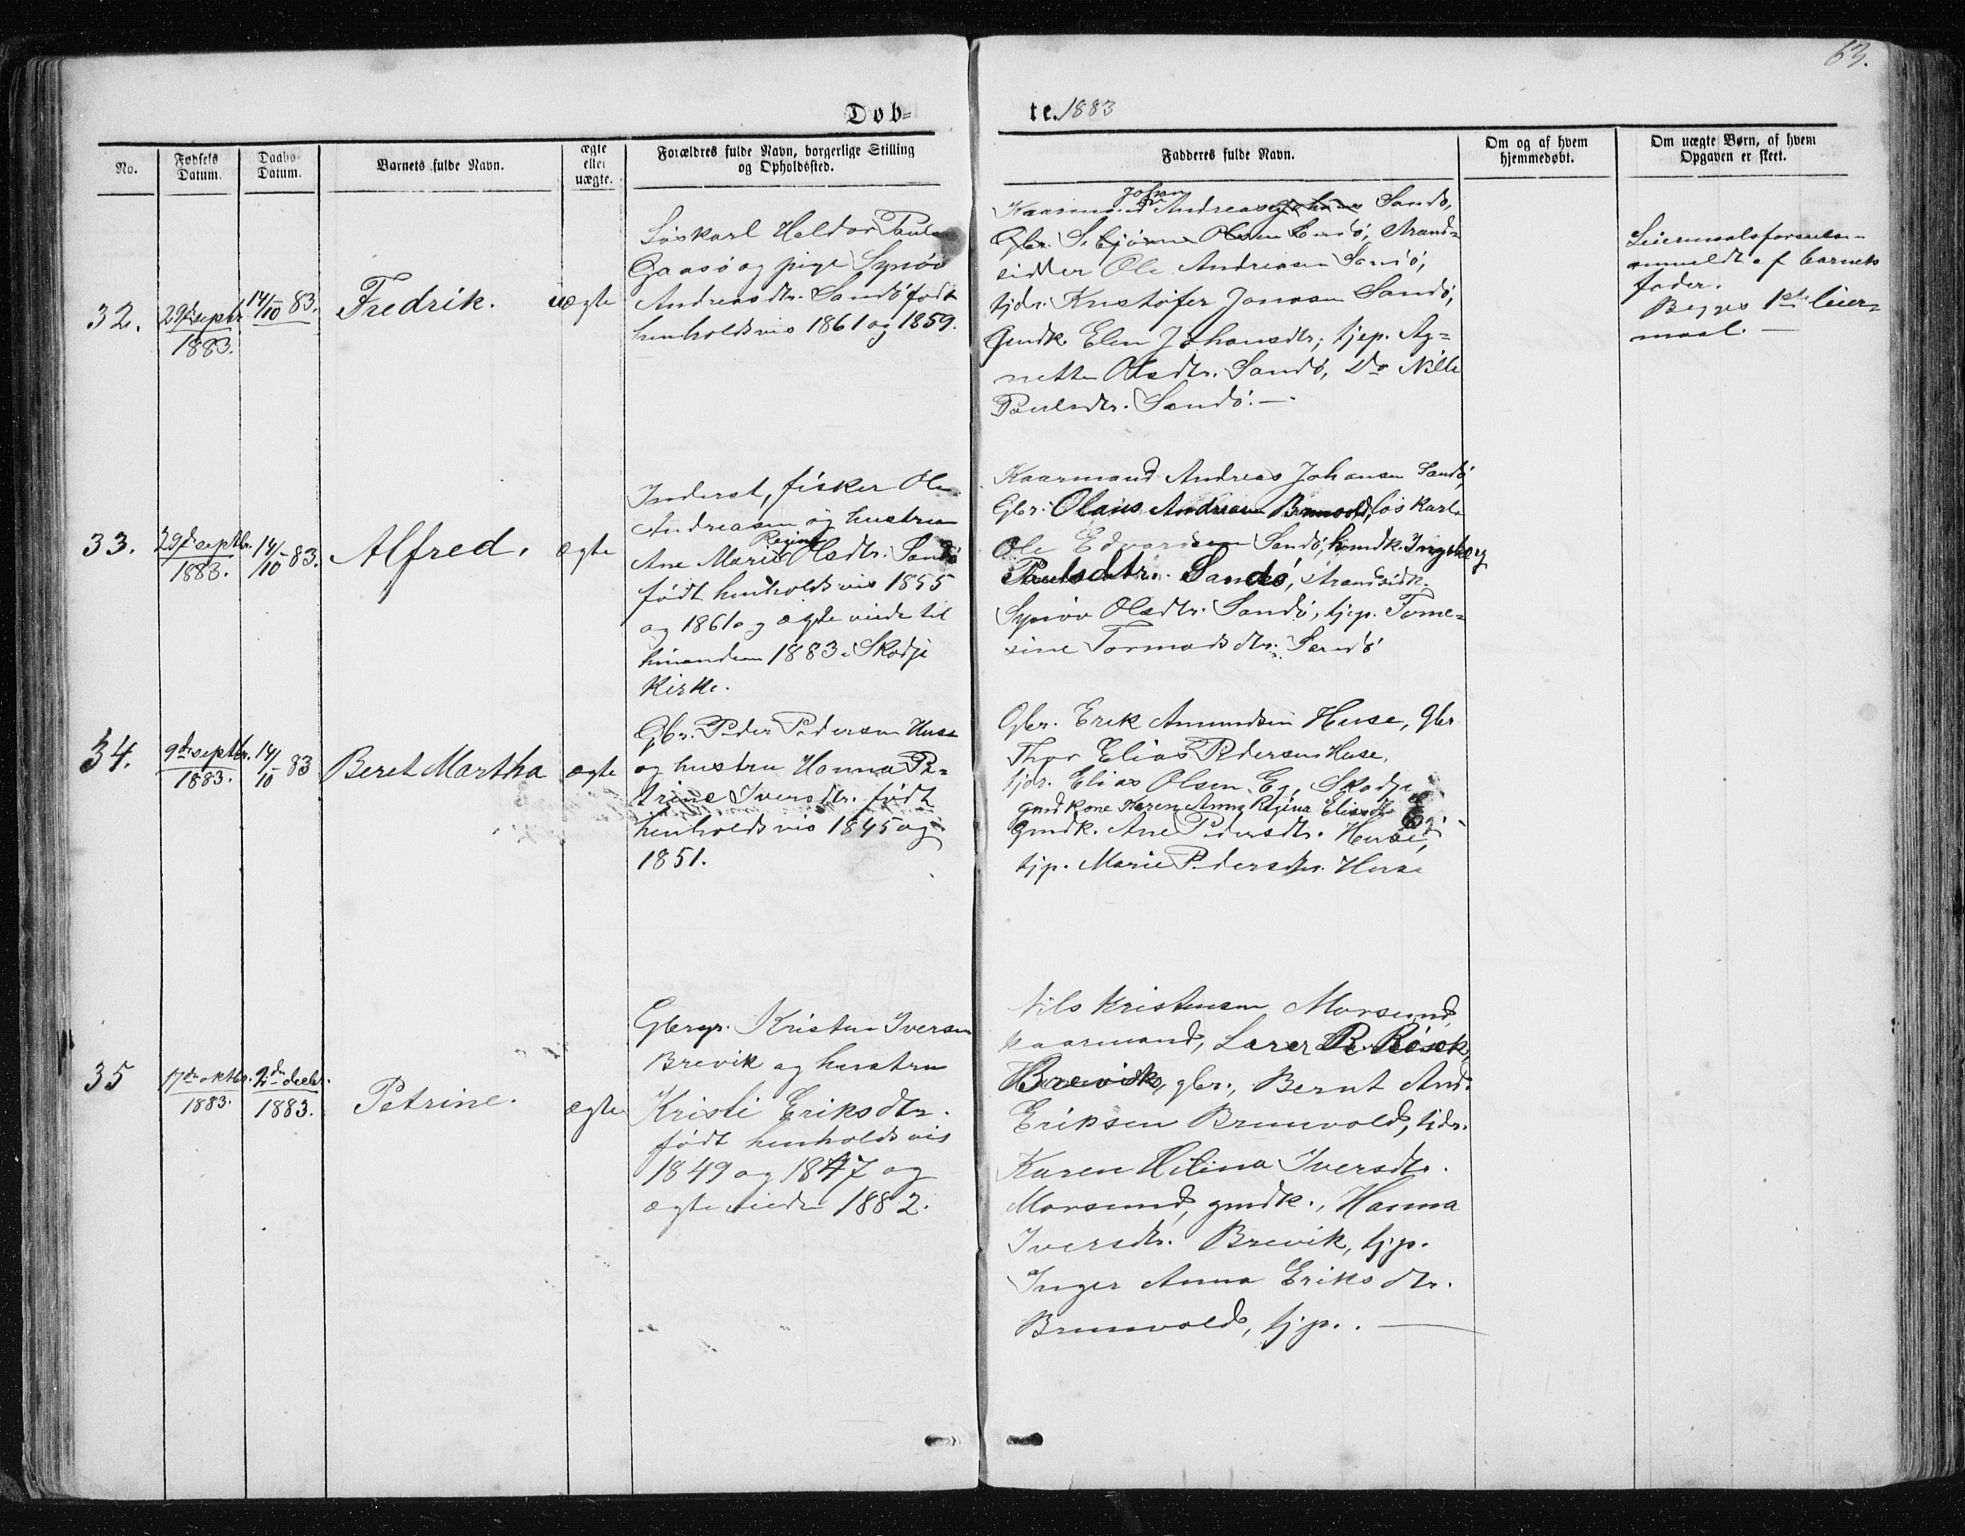 63.
Døb-
te. 1883
No.
Fødsels Datum.
Daabs Datum.
Barnets fulde Navn.
ægte eller uægte.
Forældres fulde Navn, borgerlige Stilling og Opholdssted.
Fadderes fulde Navn.
Om og af hvem hjemmedøbt.
Om uægte Børn, af hvem Opgaven er skeet.
32.
29de septbr.
1883.
14/10 83.
Fredrik.
uægte
Løskarl Haldor Pauls
Gaasø og pige Synøv
Andreasdtr. Sandø født
henholdsvis 1861 og 1859.
Johan
Kaarmand Andreas Sandø,
Gbr. Olsen Sandø, Strand-
sidder Ole Andreasen Sandø,
tjdr. Kristofer Jonasen Sandø,
Gmdk. Elen Johansdtr, tjep. Ag-
nette Olsdtr. Sandø, Do Nille
Paulsdtr. Sandø. —
Leiermaalsforseelsen
anmeldt af barnets
fader.
Begges 1ste leier-
maal. —
33.
29de septbr.
1883.
14/10 83.
Alfred.
ægte
Inderst, fisker Ole
Andreasen og hustru
Regine
Ane Marie Olsdtr. Sandø
født henholdsvis 1855
og 1861 og ægteviede til
hinanden 1883 i Skodje
Kirke.
Kaarmand Andreas Johansen Sandø,
Gbr. Olaus Andreasen Brunvold, løskarl
Ole Edvardsen Sandø, hmdk. Ingeborg
Paulsdtr. Sandø, strandsidk.
Synøv Olsdtr. Sandø, tjep. Tome-
sine Tormodsdtr. Sandø
34.
9de septbr.
1883.
14/10 83
Beret Martha
ægte
Gbr. Peder Pedersen Huse
og hustru Hanna Pe-
trine Iversdtr. født
henholdsvis 1845 og
1851.
Gbr. Erik Amundsen Huse, gbr
Thor Elias Pedersen Huse,
tjdr. Elias Olsen Eg, Skodje
gmdkone Karen Anna Regina Eliasdtr Eg
gmdk. Ane Pedersdtr. Huse,
tjp. Marie Pedersdtr. Huse
35
17de oktbr.
1883.
2den decbr.
1883.
Petrine.
ægte
Gbrgr. Kristen Iversen
Brevik og hustru
Kristi Eriksdtr.
født henholdsvis
1849 og 1847 og
ægteviede 1882.
Nils Kristensen Morsund,
kaarmand, Lærer P. Røsok,
Brevik, gbr., Bernt And.
Eriksen Brunvold, tjdr.
Karen Helena Iversdtr.
Morsund, gmdk., Hanna
Iversdtr. Brevik, tjp.
Inger Anna Eriksdtr.
Brunvold, tjp. . —